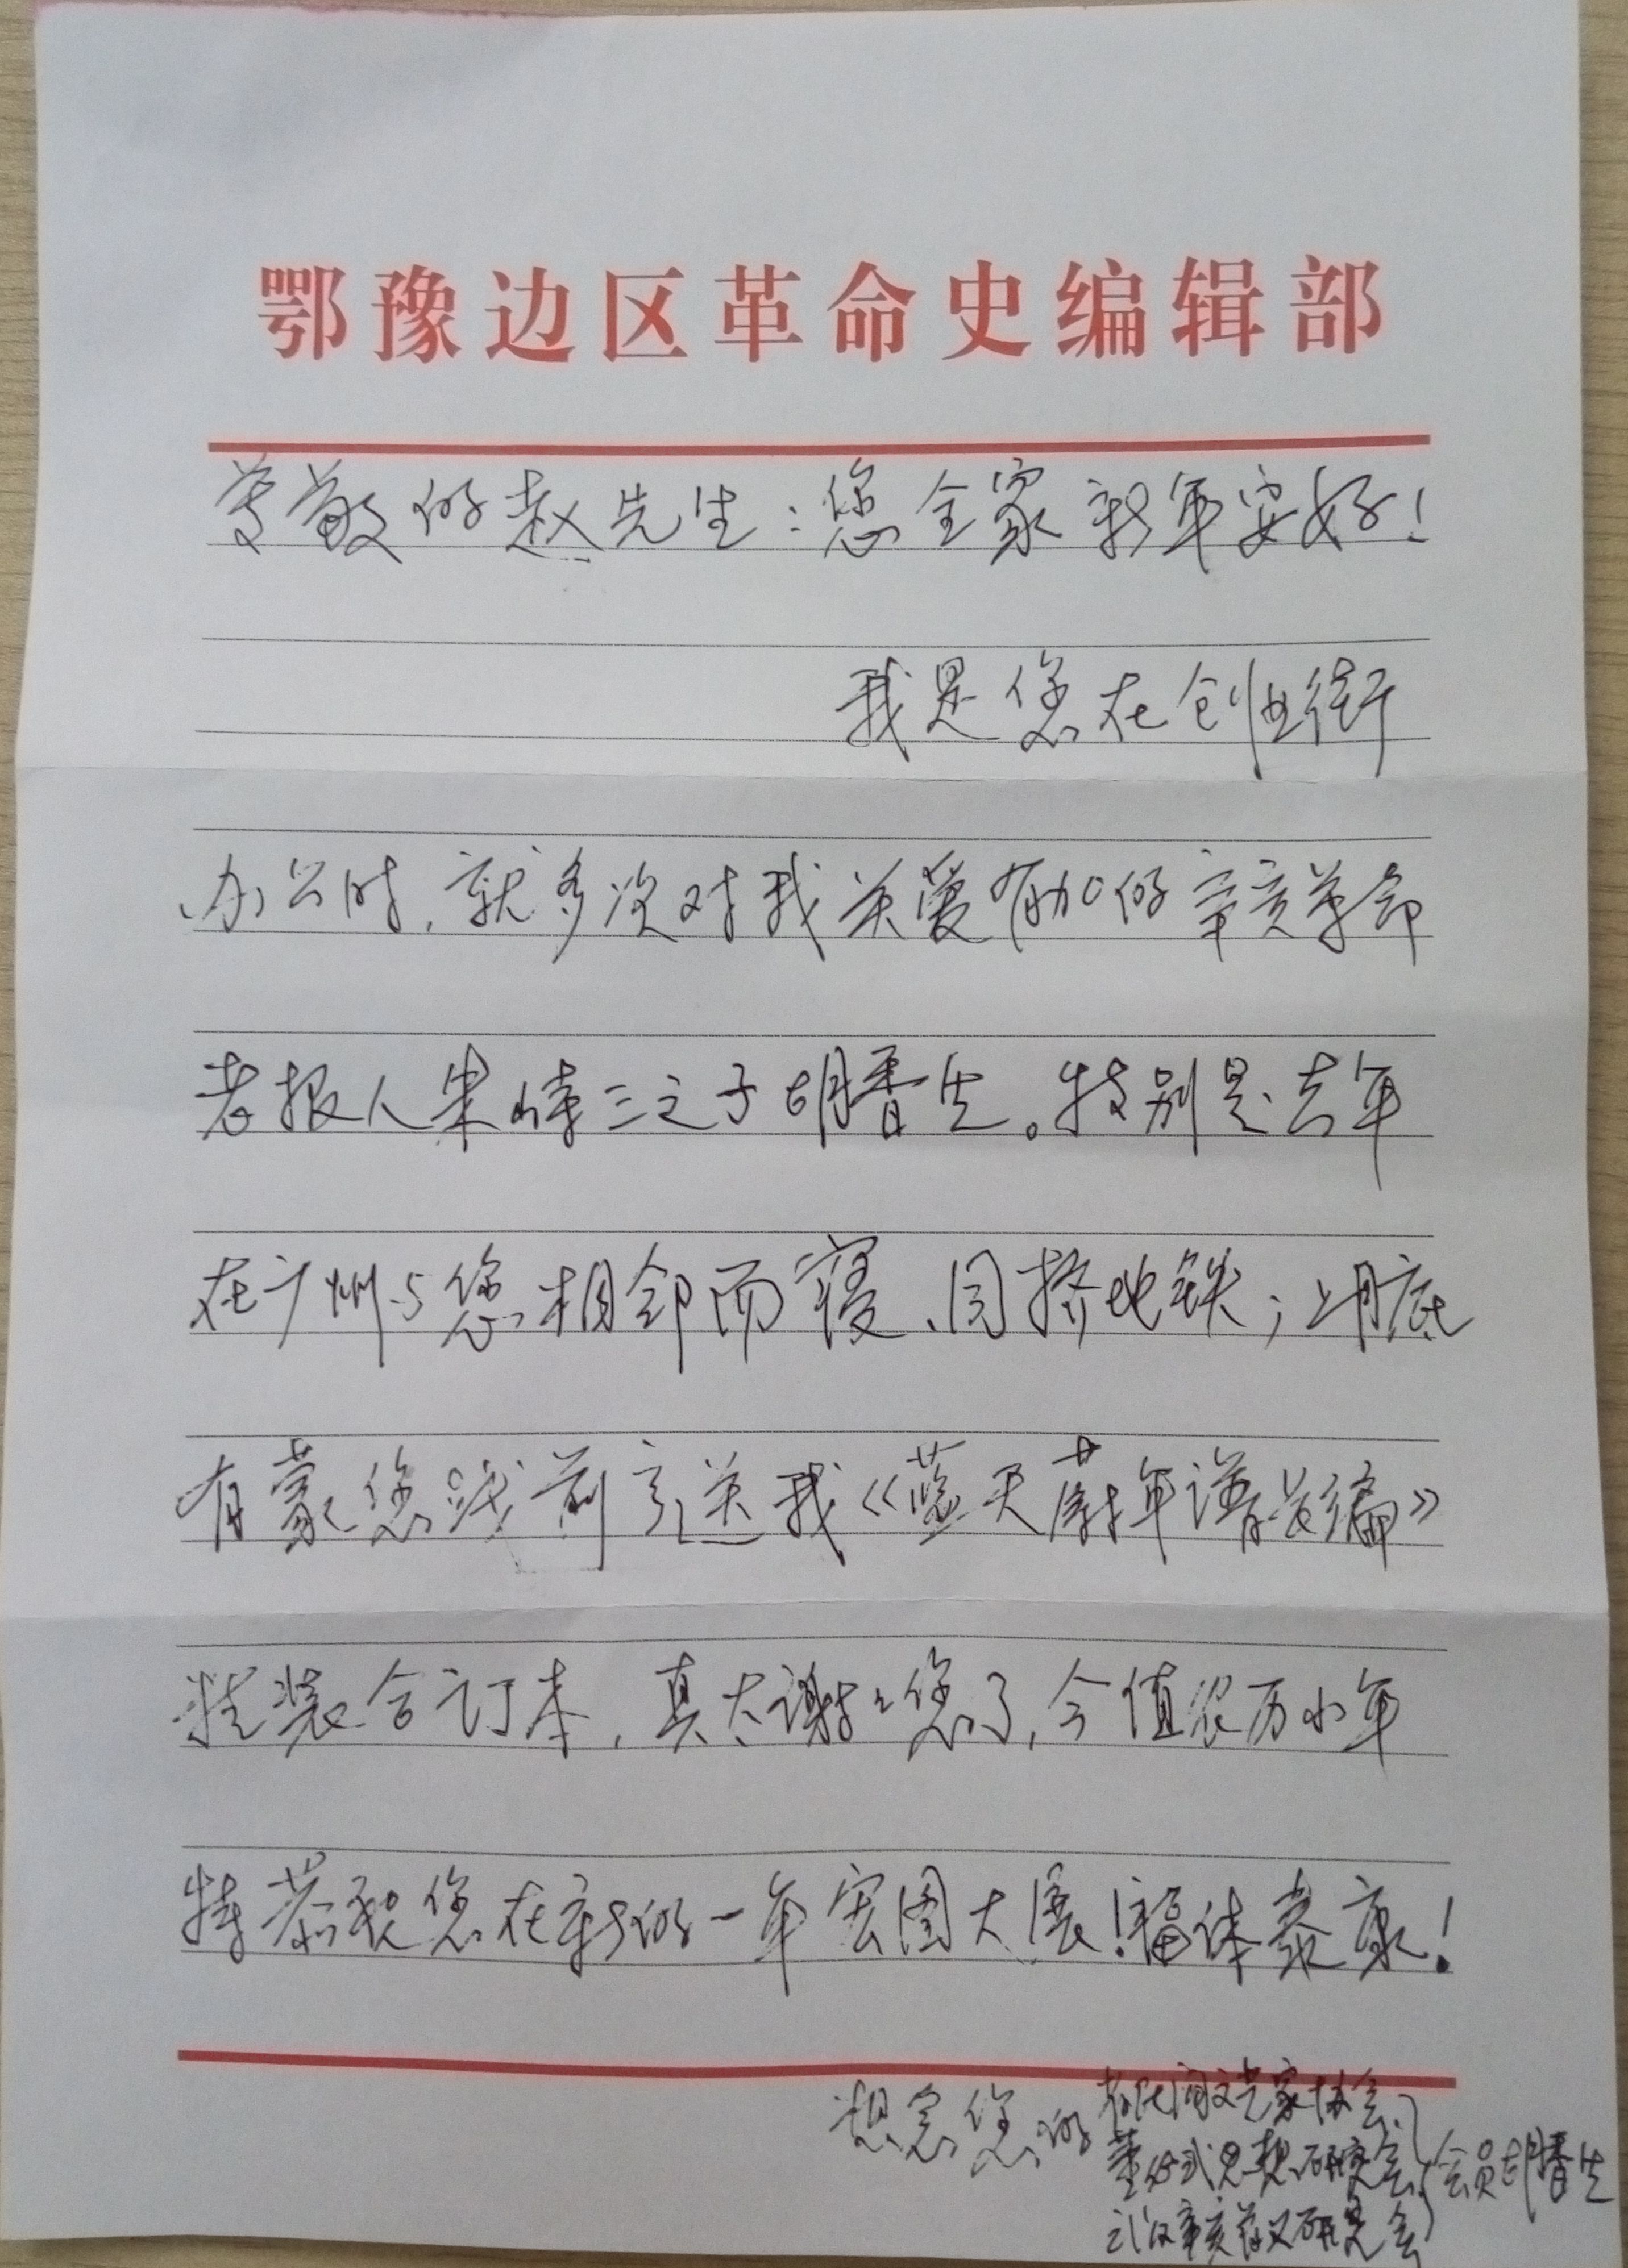 鄂豫边区革命史编辑部
尊敬的赵先生：您全家新年安好！
我是您在创业街
办公时，就多次对我关爱有加的辛亥革命
老报人朱峙三之子胡香生。特别是去年
在广州与您相邻而寝、同挤地铁；上月底
有蒙您践前言送我《蓝天蔚年谱长编》
精装合订本，真大谢谢您了，今值农历小年
特恭祝您在新的一年宏图大展！福体泰康！
想念您的
民间文艺家协会
董必武思想研究会
武汉辛亥首义研究会
会员胡香生